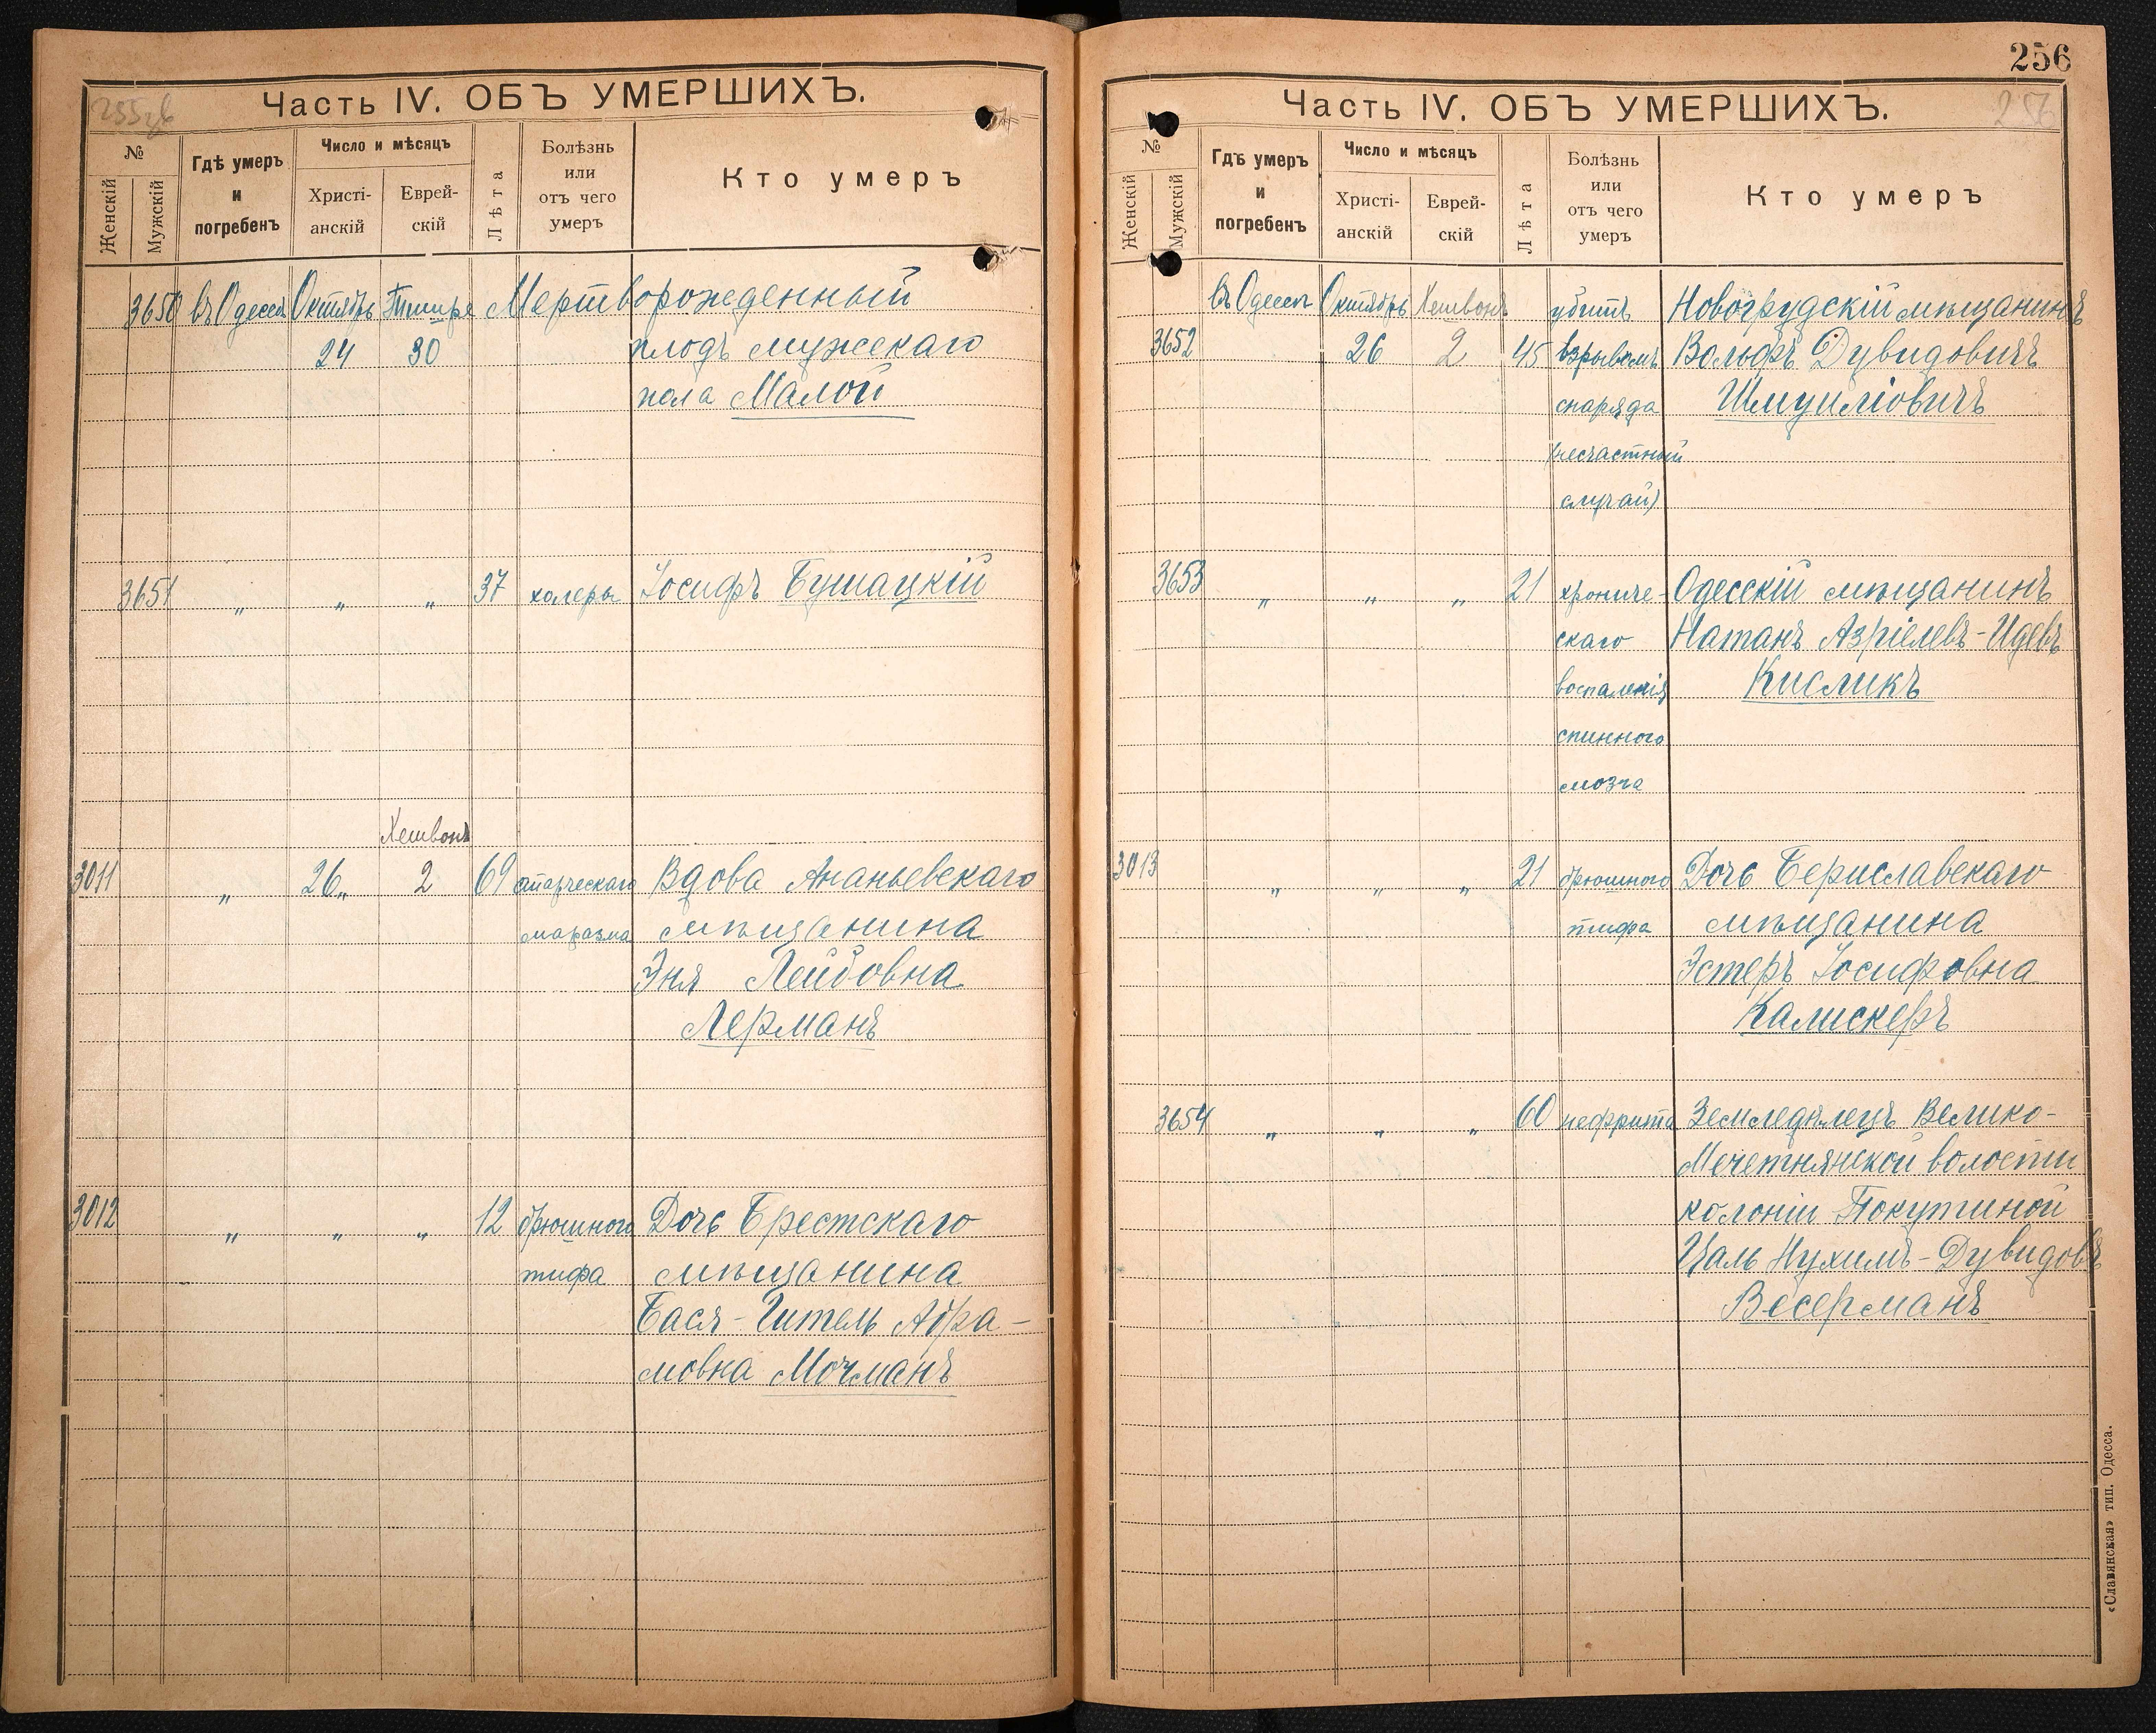 255 об
Часть IV. ОБЪ УМЕРШИХЪ.
№
Женскій
Мужскій
Гдѣ умеръ и погребенъ
Число и мѣсяцъ
Христі-анскій
Еврей-скій
Лѣта
Болѣзнь или отъ чего умеръ
Кто умеръ
3650 въ Одессѣ Октябрь Тишре Мертворожденный
24 30 плодъ мужскаго
пола Малой
3651 " " " 37 холеры Іосифъ Бушацкій
Хешвонъ
3011 " 26 " 2 69 старческаго Вдова Ананьевскаго
маразма мѣщанина
Эня Лейбовна
Лерманъ
3012 " " " 12 брюшного Дочь Брестскаго
тифа мѣщанина
Бася-Гитель Абра-
мовна Мочманъ
256
Часть IV. ОБЪ УМЕРШИХЪ.
256
№
Женскій
Мужскій
Гдѣ умеръ и погребенъ
Число и мѣсяцъ
Христі-анскій
Еврей-скій
Лѣта
Болѣзнь или отъ чего умеръ
Кто умеръ
въ Одессѣ Октябрь Хешвонъ убитъ Новогрудскій мѣщанинъ
3652 26 2 45 взрывомъ Вольфъ Дувидовичъ
снаряда Шмуиловичъ
(несчастный
случай)
3653 " " " 21 хрониче- Одесскій мѣщанинъ
скаго Натанъ Азріелевъ-Идевъ
воспаленія Кисликъ
спинного
мозга
3013 " " " 21 брюшного Дочь Бериславскаго
тифа мѣщанина
Эстеръ Іосифовна
Калискеръ
3654 " " " 60 нефрита Земледѣлецъ Велико-
Мечетнянской волости
колоніи Покутиной
Цаль Нухимъ-Дувидовъ
Весерманъ
«Славянская» тип. Одесса.